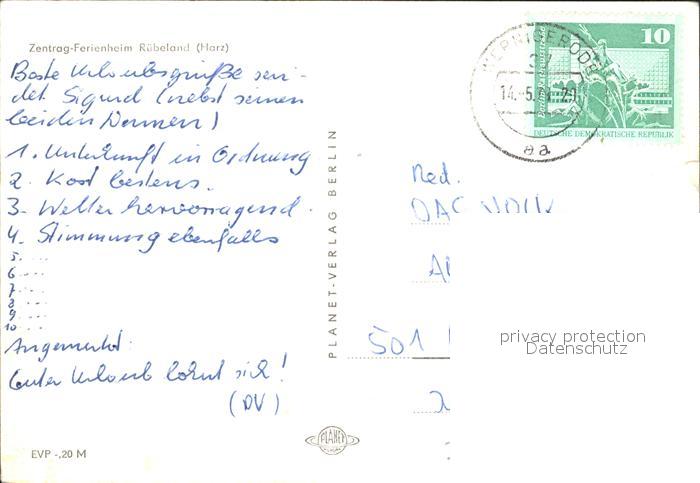 Zentrag-Ferienheim Rübeland (Harz)
Beste Urlaubsgrüße sen-
det Sigurd (nebst seinen
beiden Damen)
1. Unterkunft in Ordnung
2. Kost bestens.
3. Wetter hervorragend.
4. Stimmung ebenfalls
5. ....
6 ....
7. ....
8 ....
9 ....
10 ....
Angemerkt.
Guter Urlaub lohnt sich!
(DV)
EVP -,20 M
PLANET-VERLAG BERLIN
PLANET
WERNIGERODE
14.-5.
aa
10
DEUTSCHE DEMOKRATISCHE REPUBLIK
Red.
DAS VOLK
501
privacy protection
Datenschutz